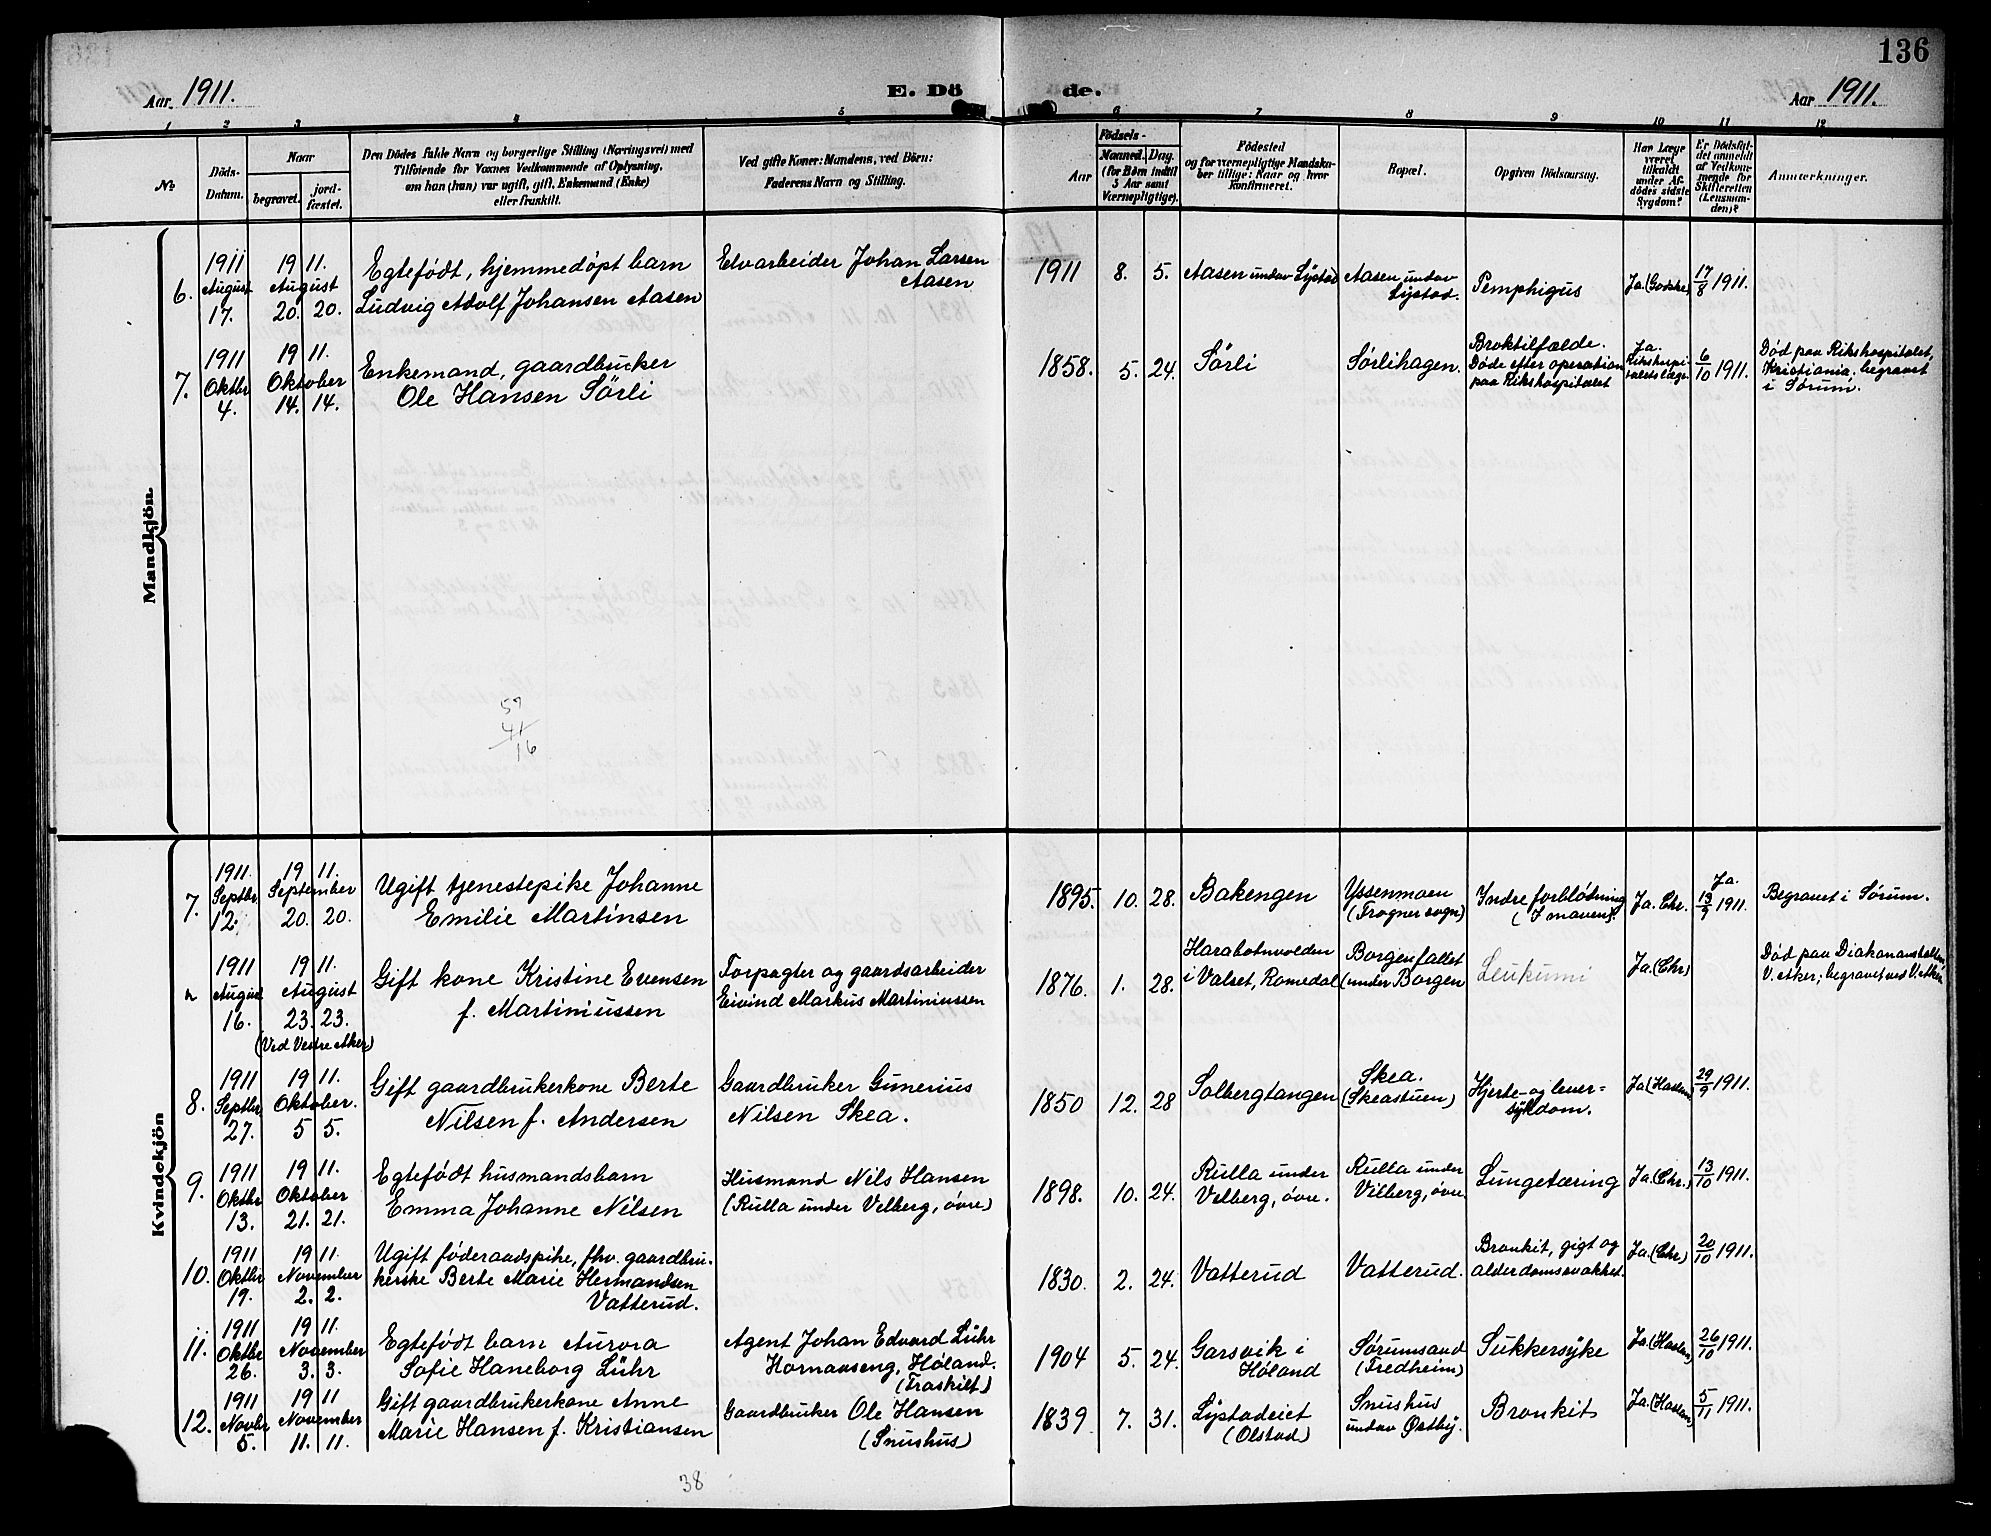 136
Aar 1911.
E. Dö
de.
Aar 1911.
1 2 3 4 5 6 7 8 9 10 11 12
№
Döds-
Datum.
Naar
begravet.
jord-
fæstet.
Den Dödes fulde Navn og borgerlige Stilling (Næringsvei) med
Tilföiende for Voxnes Vedkommende af Oplysning,
om han (hun) var ugift, gift, Enkemand (Enke)
eller fraskilt.
Ved gifte Koner: Mandens, ved Börn:
Faderens Navn og Stilling.
Födsels-
Aar
Maaned.
Dag.
(for Börn indtil
5 Aar samt
Værnepligtige).
Födested
og for værnepligtige Mandska-
ber tillige: Naar og hvor
konfirmeret.
Bopæl.
Opgiven Dödsaarsag.
Har Læge
været
tilkaldt
under Af-
dödes sidste
Sygdom?
Er Dödsfal-
det anmeldt
af Vedkom-
mende for
Skifteretten
(Lensman-
den)?
Anmærkninger.
Mandkjön.
6.
1911
August
17.
19 11.
August
20. 20.
Egtefødt, hjemmedøpt barn
Ludvig Adolf Johansen Aasen
Elvarbeider Johan Larsen
Aasen
1911 8. 5.
Aasen under Lystad
Aasen under
Lystad.
Pemphigus
Ja. (Godske)
17/8 1911.
7.
1911
Oktbr
4.
19 11.
Oktober
14. 14.
Enkemand, gaardbruker
Ole Hansen Sörli
1858. 5. 24.
Sörli
Sørlihagen.
Broktilfælde.
Døde efter operation
paa Rikshospitalet
Ja.
Rikshospi-
talets læge.
6/10 1911.
Död paa Rikshospitalet,
Kristiania, begravet
i Sørum.
57
41
16
Kvindekjön
7.
1911.
Septbr.
12.
19 11.
September
20. 20.
Ugift tjenestepike Johanne
Emilie Martinsen
1895. 10. 28.
Bakengen
Yssenmoen
(Frogner sogn)
Indre forblödning
(I maven).
Ja. Chr.
Ja.
13/9 1911.
Begravet i Sørum.
1911
August
16.
19 11.
August
23. 23.
(Ved Vestre Aker)
Gift kone Kristine Evensen
f. Martiniussen
Forpagter og gaardsarbeider
Eivind Markus Martiniussen
1876. 1. 28.
i Valset, Romedal
Borgenfallet
(under Borgen
Leukumi
Ja. (Chr)
Død paa Diakonanstalten
V. Aker; begravet ved V. Aker
8.
1911
Septbr
27.
19 11.
Oktober.
5 5.
Gift gaardbrukerkone Berte
Nilsen f. Andersen
Gaardbruker Gunerius
Nilsen Skea.
1850 12. 28
Solbergtangen
Skea.
(Skeastuen)
Hjerte- og lever-
sykdom.
Ja (Haslem)
29/9 1911.
9.
1911
Oktbr
13.
19 11.
Oktober
21. 21.
Egtefødt husmandsbarn
Emma Johanne Nilsen
Husmand Nils Hansen
(Rulla under Velberg, övre)
1898. 10. 24.
Rulla under
Velberg, övre.
Rulla under
Vilberg, övre
Lungetæring
Ja. (Chr.)
13/10 1911.
10.
1911
Oktbr
19.
19 11.
November
2. 2.
Ugift føderaadspike, fhv. gaardbru-
kerske Berte Marie Hermandsen
Vatterud.
1830. 2. 24.
Vatterud
Vatterud.
Bronkit, gigt og
alderdomssvakhet.
Ja. (Chr)
20/10 1911.
11.
1911
Oktbr
26.
19 11.
November
3. 3.
Egtefødt barn Aurora
Sofie Haneborg Lühr
Agent Johan Edvard Lühr
Hornaaseng, Høland.
(Fraskilt)
1904 5. 24.
Garsvik i
Høland
Sørumsand
(Fredheim)
Sukkersyke
Ja. (Haslem)
26/10 1911.
12.
1911
Novbr
5.
19 11
November
11. 11.
Gift gaardbrukerkone Anne
Marie Hansen f. Kristiansen
Gaardbruker Ole Hansen
(Snushus)
1839 7. 31.
Lystadeiet
(Olstad)
Snushus
under Østby.
Bronkit
Ja. (Haslem)
5/11 1911.
38